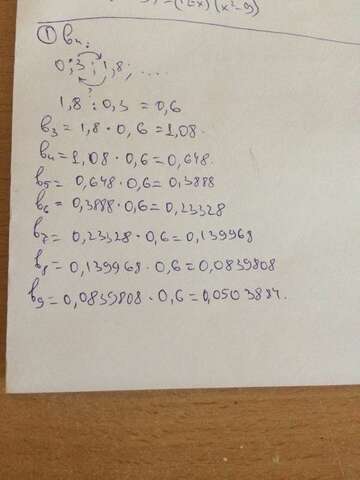 =(12x)(x²-9)
① bₙ:
0,3 ; 1,8; ....
?
1,8 : 0,3 = 0,6
b₃ = 1,8 · 0,6 = 1,08.
b₄ = 1,08 · 0,6 = 0,648.
b₅ = 0,648 · 0,6 = 0,3888
b₆ = 0,3888 · 0,6 = 0,23328
b₇ = 0,23328 · 0,6 = 0,139968
b₈ = 0,139968 · 0,6 = 0,0839808
b₉ = 0,0839808 · 0,6 = 0,0503884.